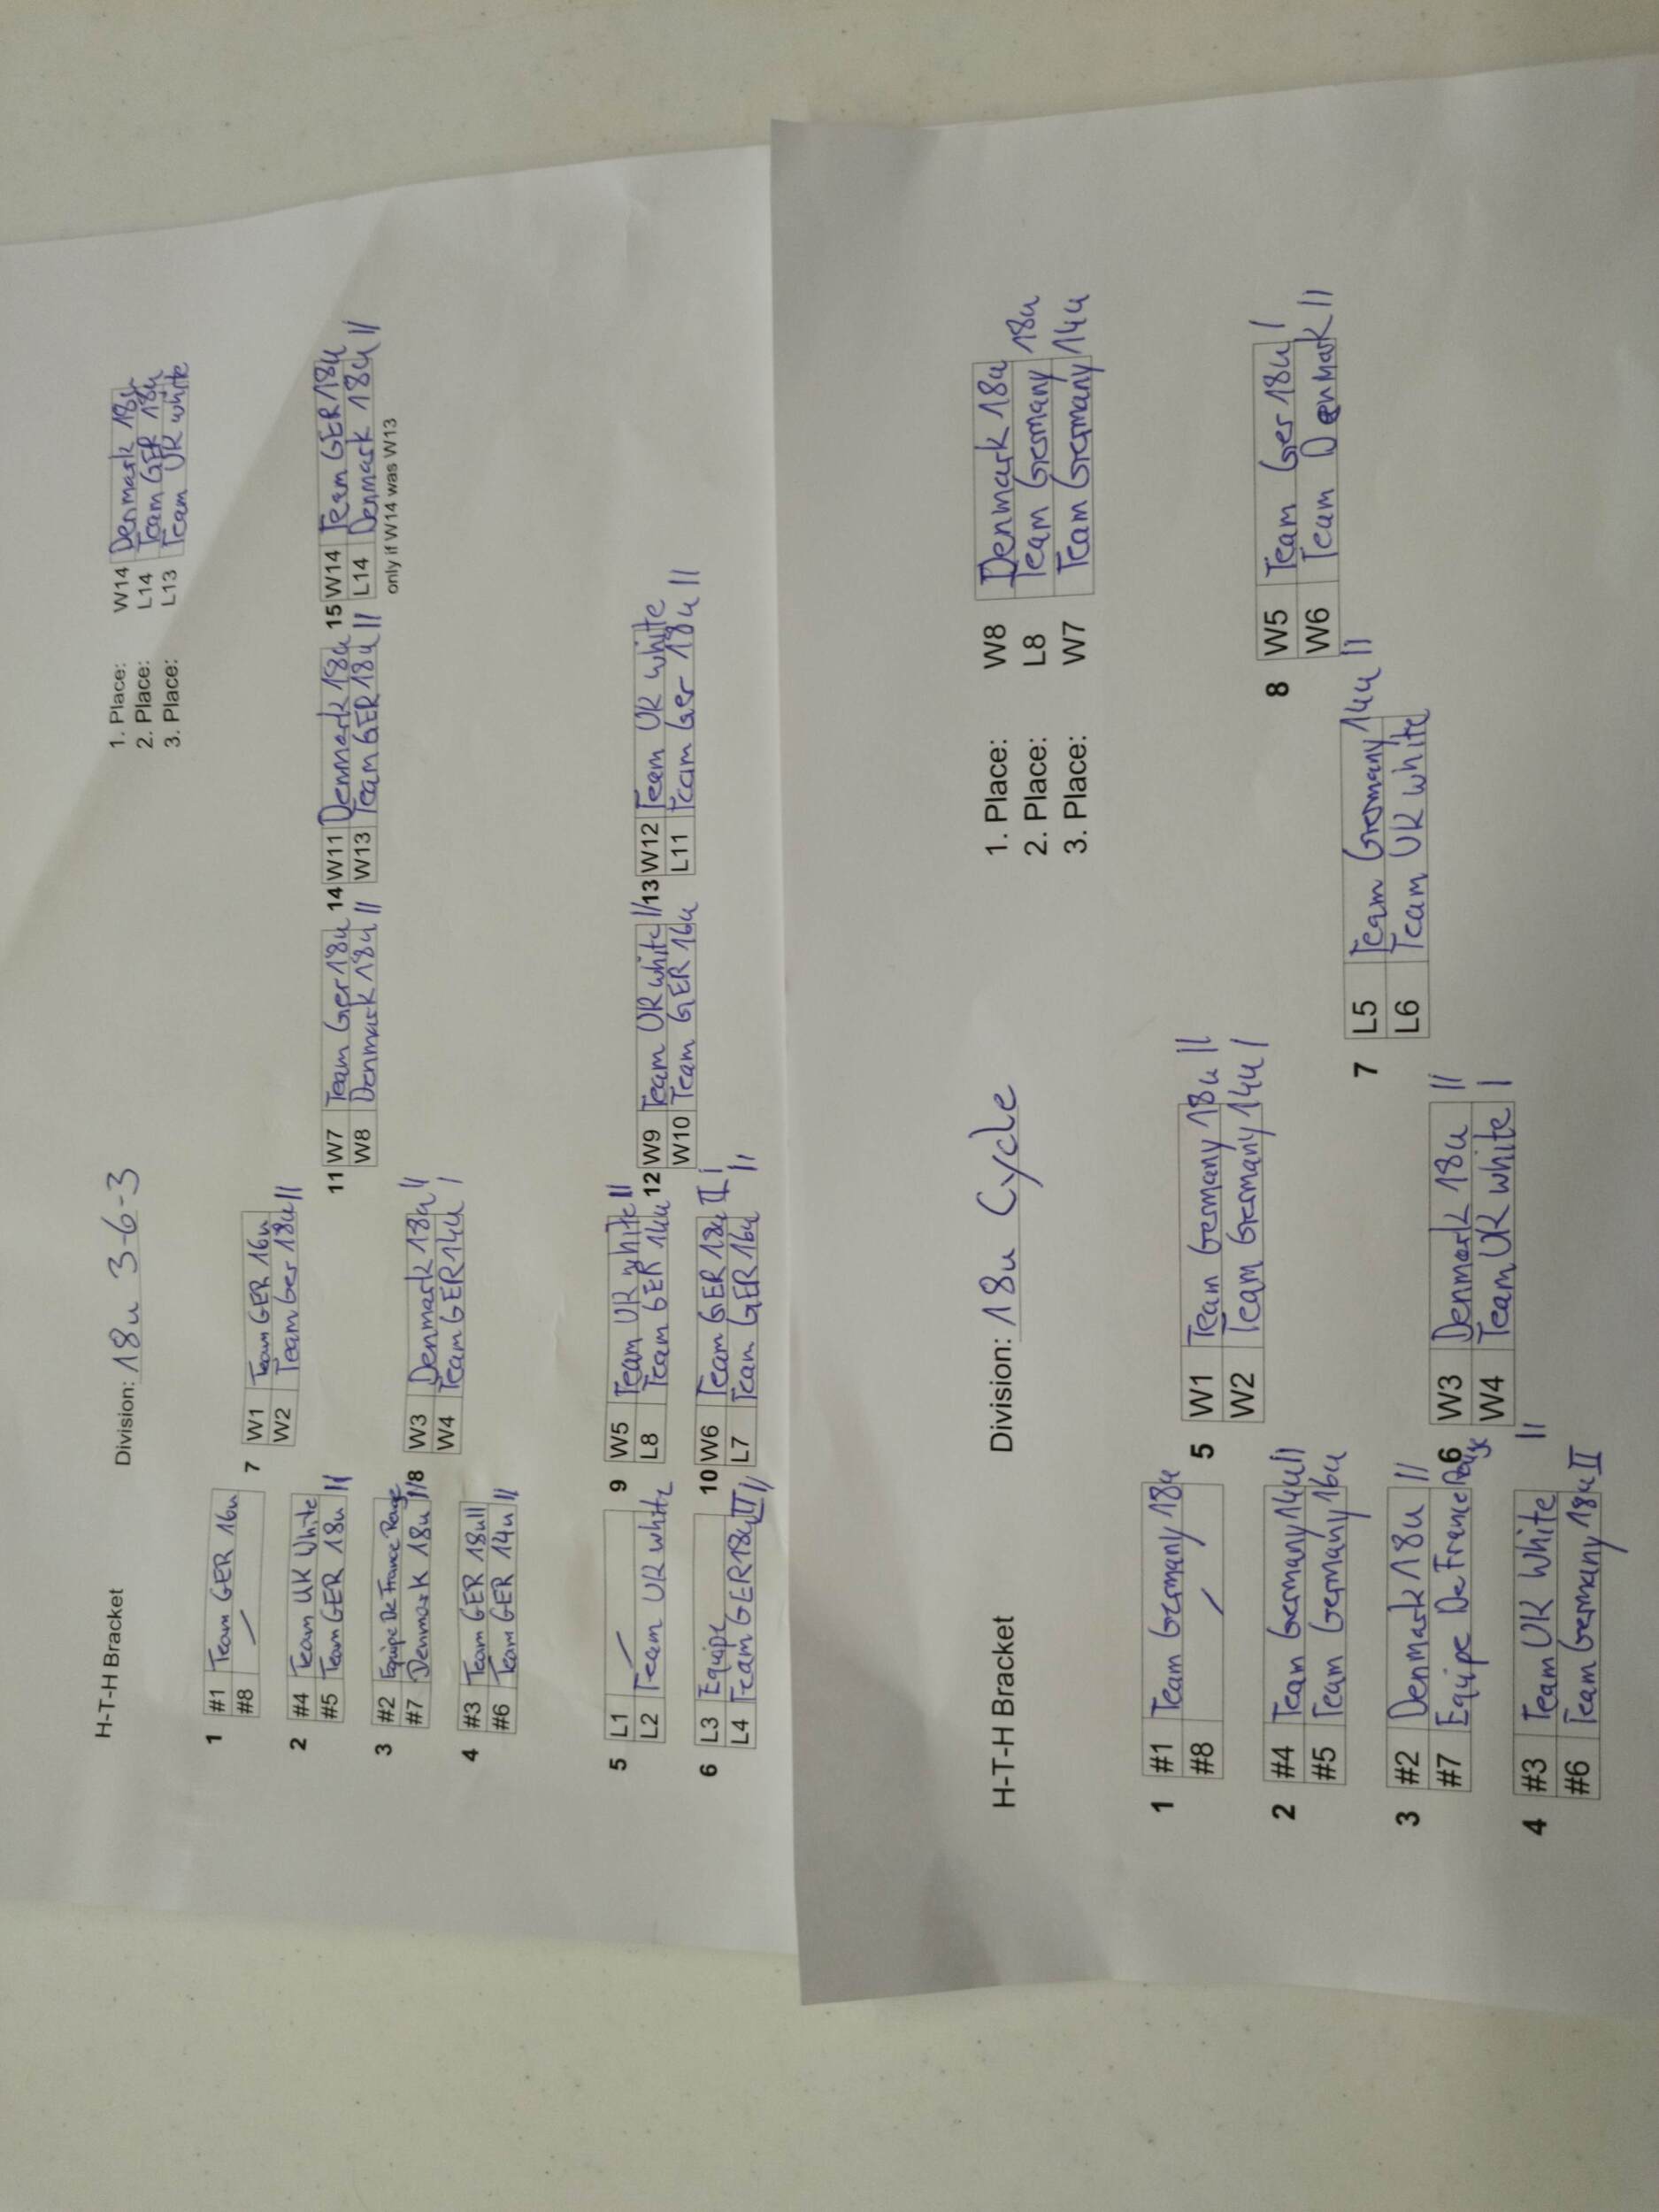 H-T-H Bracket Division: 18u 3-6-3
1. Place: W14 Denmark 18u
2. Place: L14 Team GER 18u
3. Place: L13 Team UK white
1 #1 Team GER 16u
#8 /
2 #4 Team UK White
#5 Team GER 18u ||
3 #2 Equipe De France Rouge
#7 Denmark 18u ||
4 #3 Team GER 18u II
#6 Team GER 14u ||
7 W1 Team GER 16u
W2 Team Ger 18u ||
8 W3 Denmark 18u ||
W4 Team GER 14u |
11 W7 Team Ger 18u
W8 Denmark 18u ||
14 W11 Denmark 18u
W13 Team GER 18u ||
15 W14 Team GER 18u
L14 Denmark 18u ||
only if W14 was W13
5 L1 /
L2 Team UK white
6 L3 Equipe
L4 Team GER 18u II ||
9 W5 Team UK white ||
L8 Team GER 14u
10 W6 Team GER 18u II |
L7 Team GER 16u ||
12 W9 Team UK white ||
W10 Team GER 16u
13 W12 Team UK white
L11 Team Ger 18u ||
H-T-H Bracket Division: 18u Cycle
1. Place: W8 Denmark 18u
2. Place: L8 Team Germany 18u
3. Place: W7 Team Germany 14u
1 #1 Team Germany 18u
#8 /
2 #4 Team Germany 14u ||
#5 Team Germany 16u
3 #2 Denmark 18u ||
#7 Equipe De France Rouge
4 #3 Team UK White ||
#6 Team Germany 18u II
5 W1 Team Germany 18u ||
W2 Team Germany 14u |
6 W3 Denmark 18u ||
W4 Team UK white |
7 L5 Team Germany 14u ||
L6 Team UK white
8 W5 Team Ger 18u |
W6 Team Denmark ||